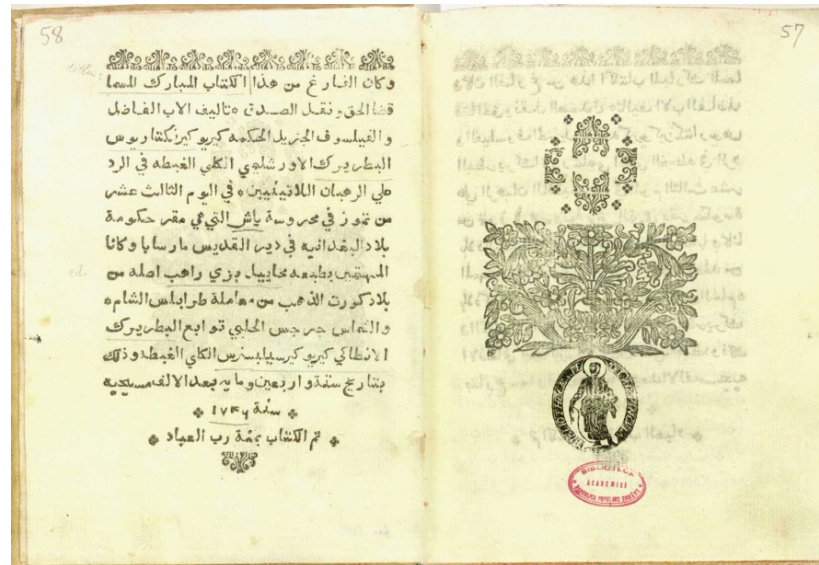 57
BIBLIOTECA
ACADEMIEI
REPUBLICII POPULARE ROMÂNE
58
وكان الفارغ من هذا الكتاب المبارك المسما
قضا الحق ونقد الصدق ه تاليف الاب الفاضل
والفيلسوف الجزيل الحكمه كيريو كير نكتاريوس
البطريرك الاورشليمي الكلي الغبطه في الرد
علي الرهبان اللاتينيين ه في اليوم الثالث عشر
من تموز في محروسة ياش التي هي مقر حكومة
بلاد البغدانيه في دير القديس مار سابا وكانا
المهتمين بطبعه مخاييل بزي راهب اصله من
بلاد كورت الذهب من معاملة طرابلس الشام ه
والشماس جرجس الحلبي توابع البطريرك
الانطاكي كيريو كير سيلبسترس الكلي الغبطه وذلك
بتاريخ ستة واربعين ومايه بعد الالف مسيحيه
سنة ١٧٤٦
تم الكتاب بمنة رب العباد